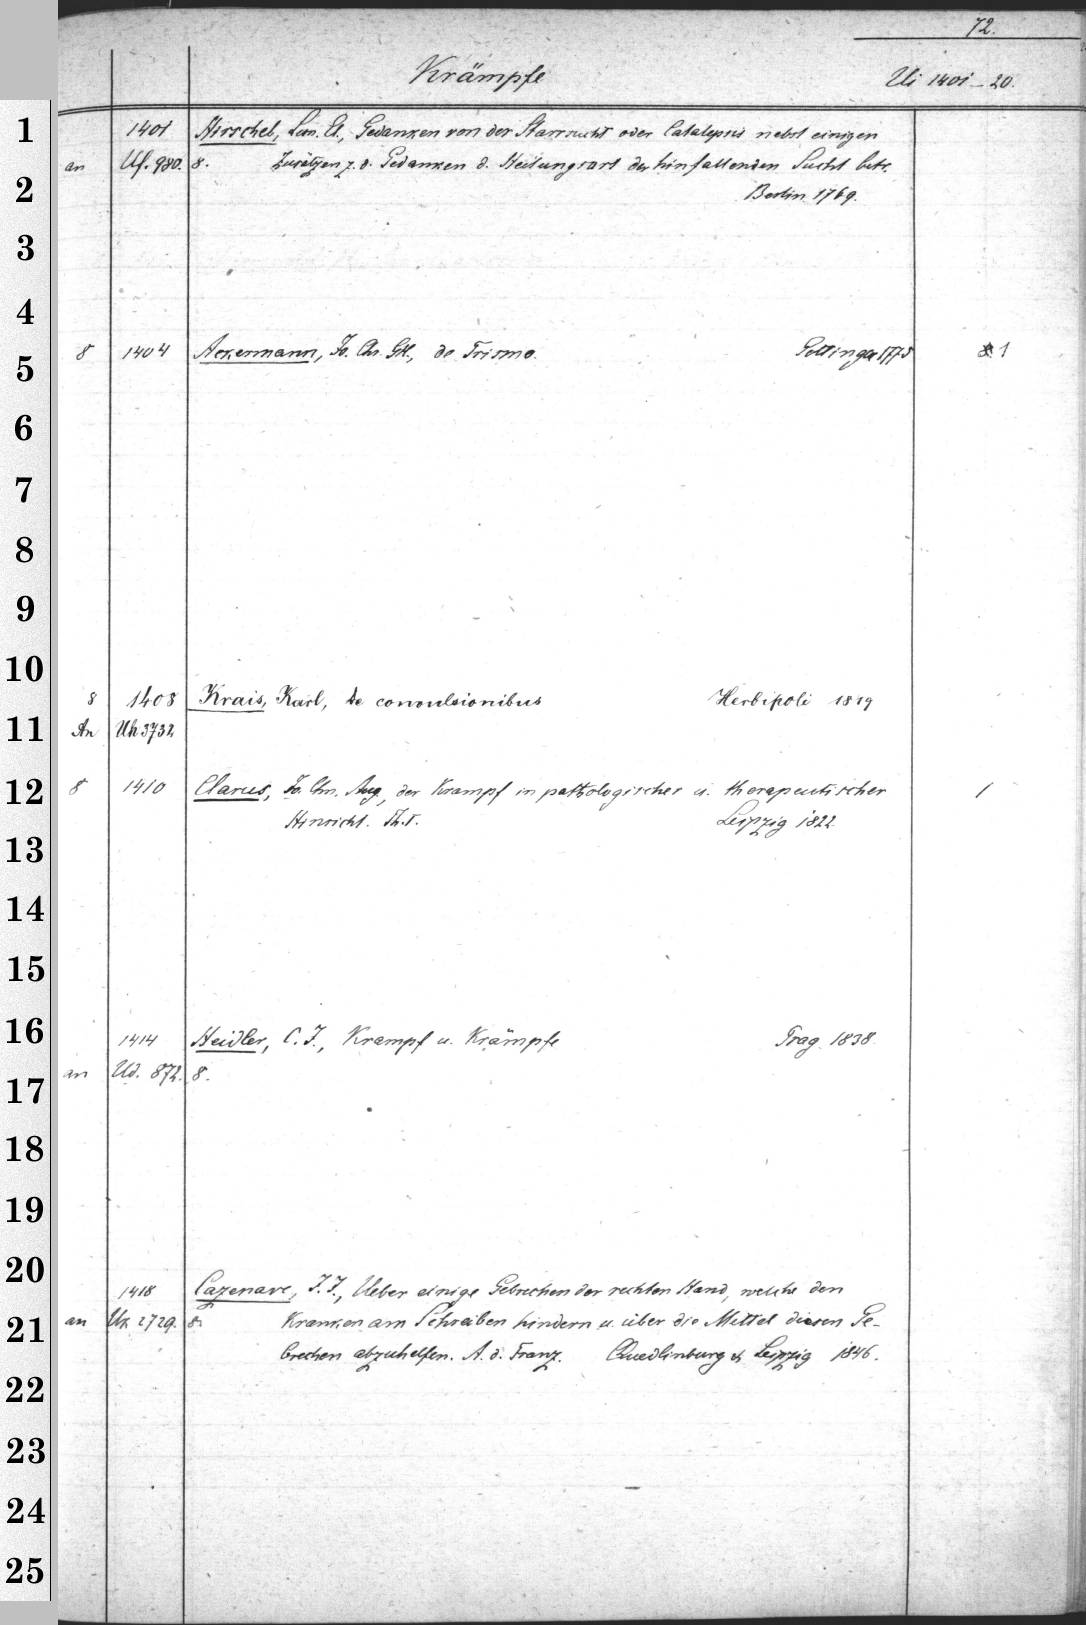 72.
Krämpfe Ui 1401-20.
1 1401 Hirschel, Leon. El., Gedanken von der Starrsucht oder Catalepsis nebst einigen
an Uf. 980. 8. Zusätzen z. d. Gedanken d. Heilungsart der hinfallenden Sucht betr.
2 Berlin 1769.
3
4
8 1404 Ackermann, Jo. Chr. Gtl., de Trismo. Gottingae 1775 1
5
6
7
8
9
10
8 1408 Krais, Karl, de convulsionibus Herbipoli 1819
11 An Uh 3732
12 8 1410 Clarus, Jo. Chr. Aug., der Krampf in pathologischer u. therapeutischer 1
Hinsicht. Th. I. Leipzig 1822.
13
14
15
16 1414 Heidler, C. J., Krampf u. Krämpfe Prag. 1838.
an Ud. 872. 8.
17
18
19
20
1418 Cazenave, J. J., Ueber einige Gebrechen der rechten Hand, welche den
21 an Uk 2729. 8. Kranken am Schreiben hindern u. über die Mittel diesen Ge-
brechen abzuhelfen. A. d. Franz. Quedlinburg & Leipzig 1846.
22
23
24
25